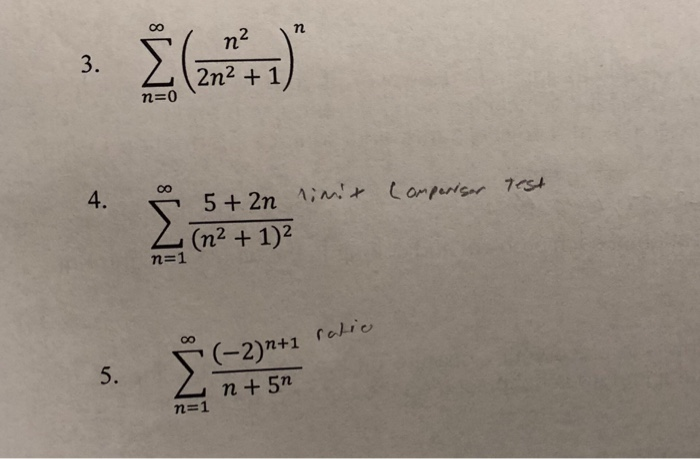 3. $\sum_{n=0}^{\infty} \left( \frac{n^2}{2n^2 + 1} \right)^n$
4. $\sum_{n=1}^{\infty} \frac{5 + 2n}{(n^2 + 1)^2}$ limit Comparison Test
5. $\sum_{n=1}^{\infty} \frac{(-2)^{n+1}}{n + 5^n}$ ratio